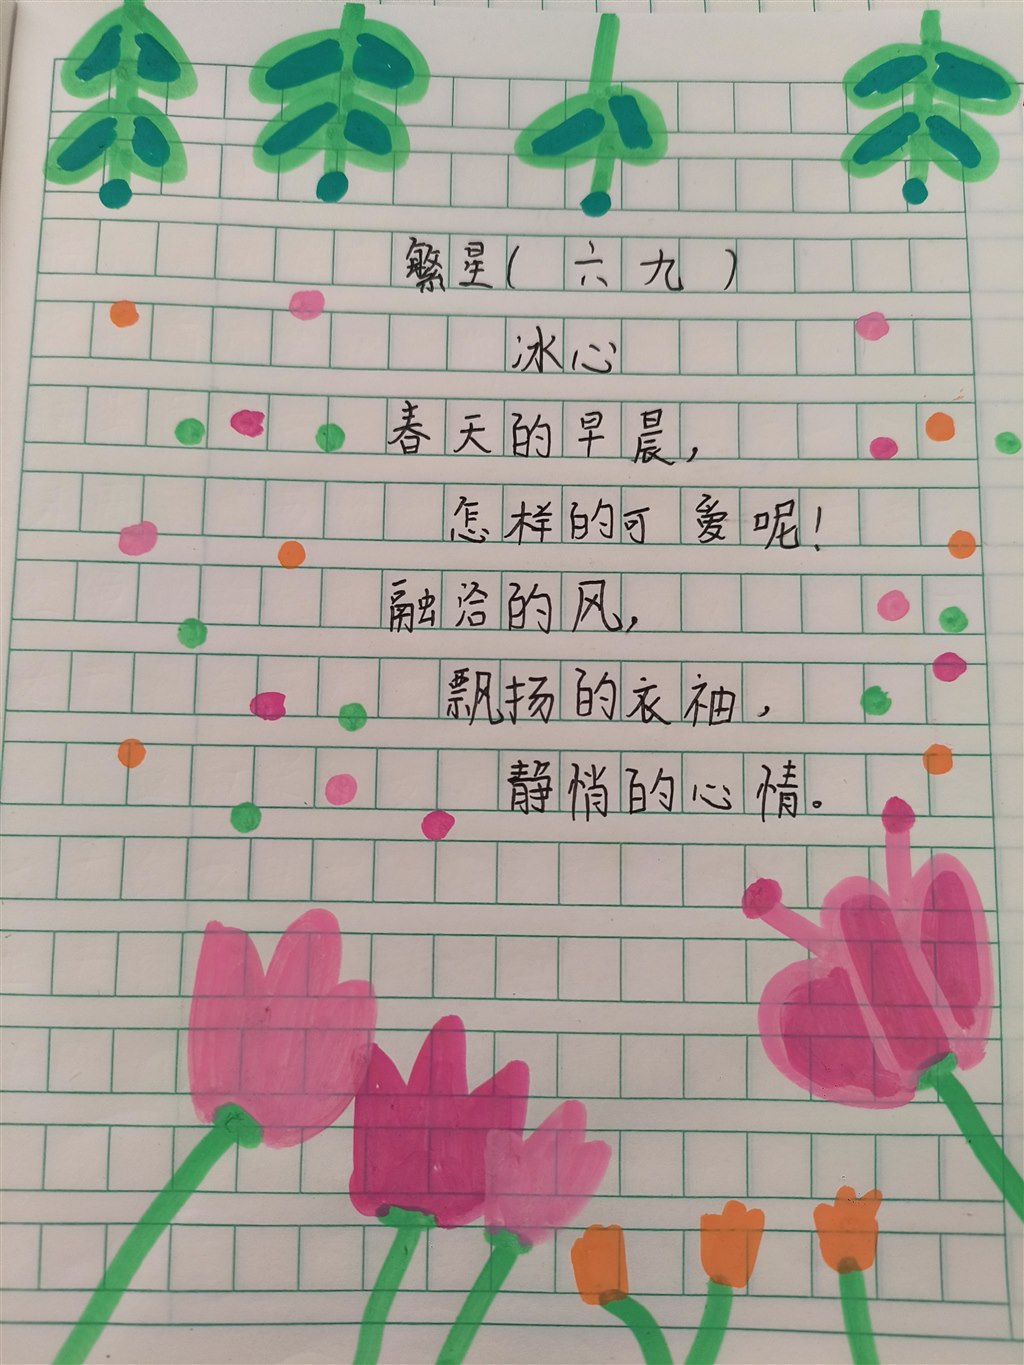 繁星(六九)
冰心
春天的早晨,
怎样的可爱呢!
融洽的风,
飘扬的衣袖,
静悄的心情。